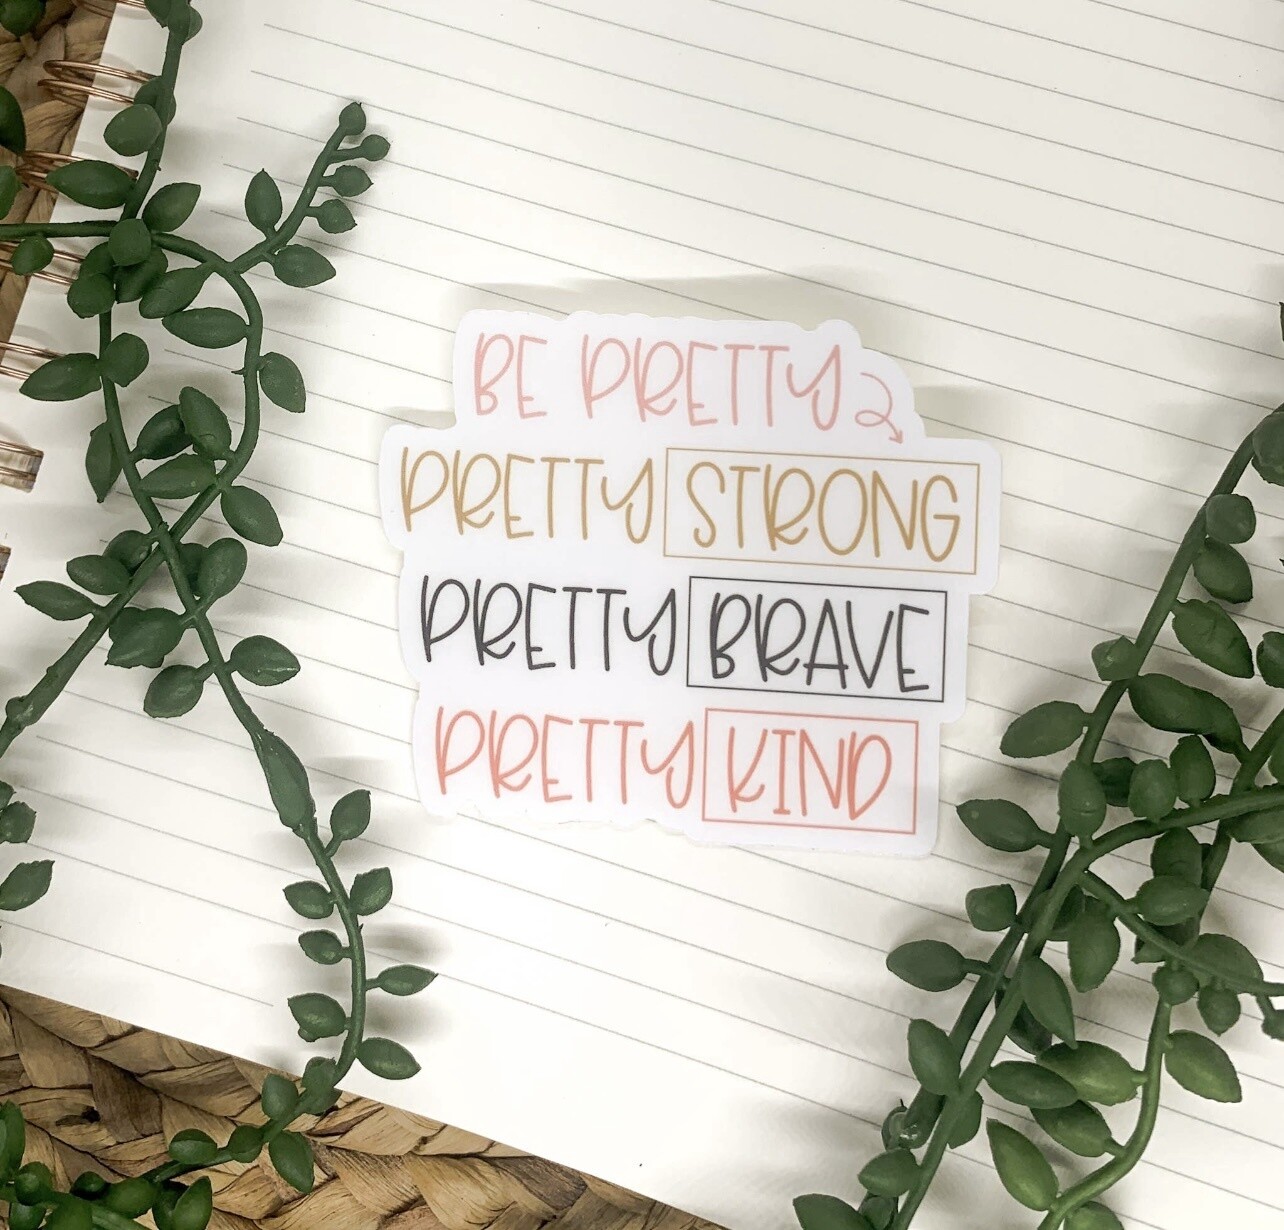 BE PRETTY
PRETTY STRONG
PRETTY BRAVE
PRETTY KIND